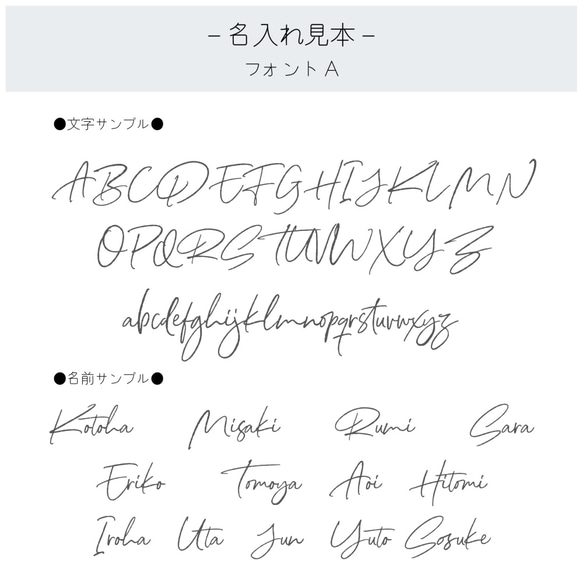 – 名入れ見本 –
フォント A
●文字サンプル●
ABCDEFGHIJKLMN
OPQRSTUVWXYZ
abcdefghijklmnopqrstuvwxyz
●名前サンプル●
Kotoha Misaki Rumi Sara
Eriko Tomoya Aoi Hitomi
Iroha Uta Jun Yuto Sosuke